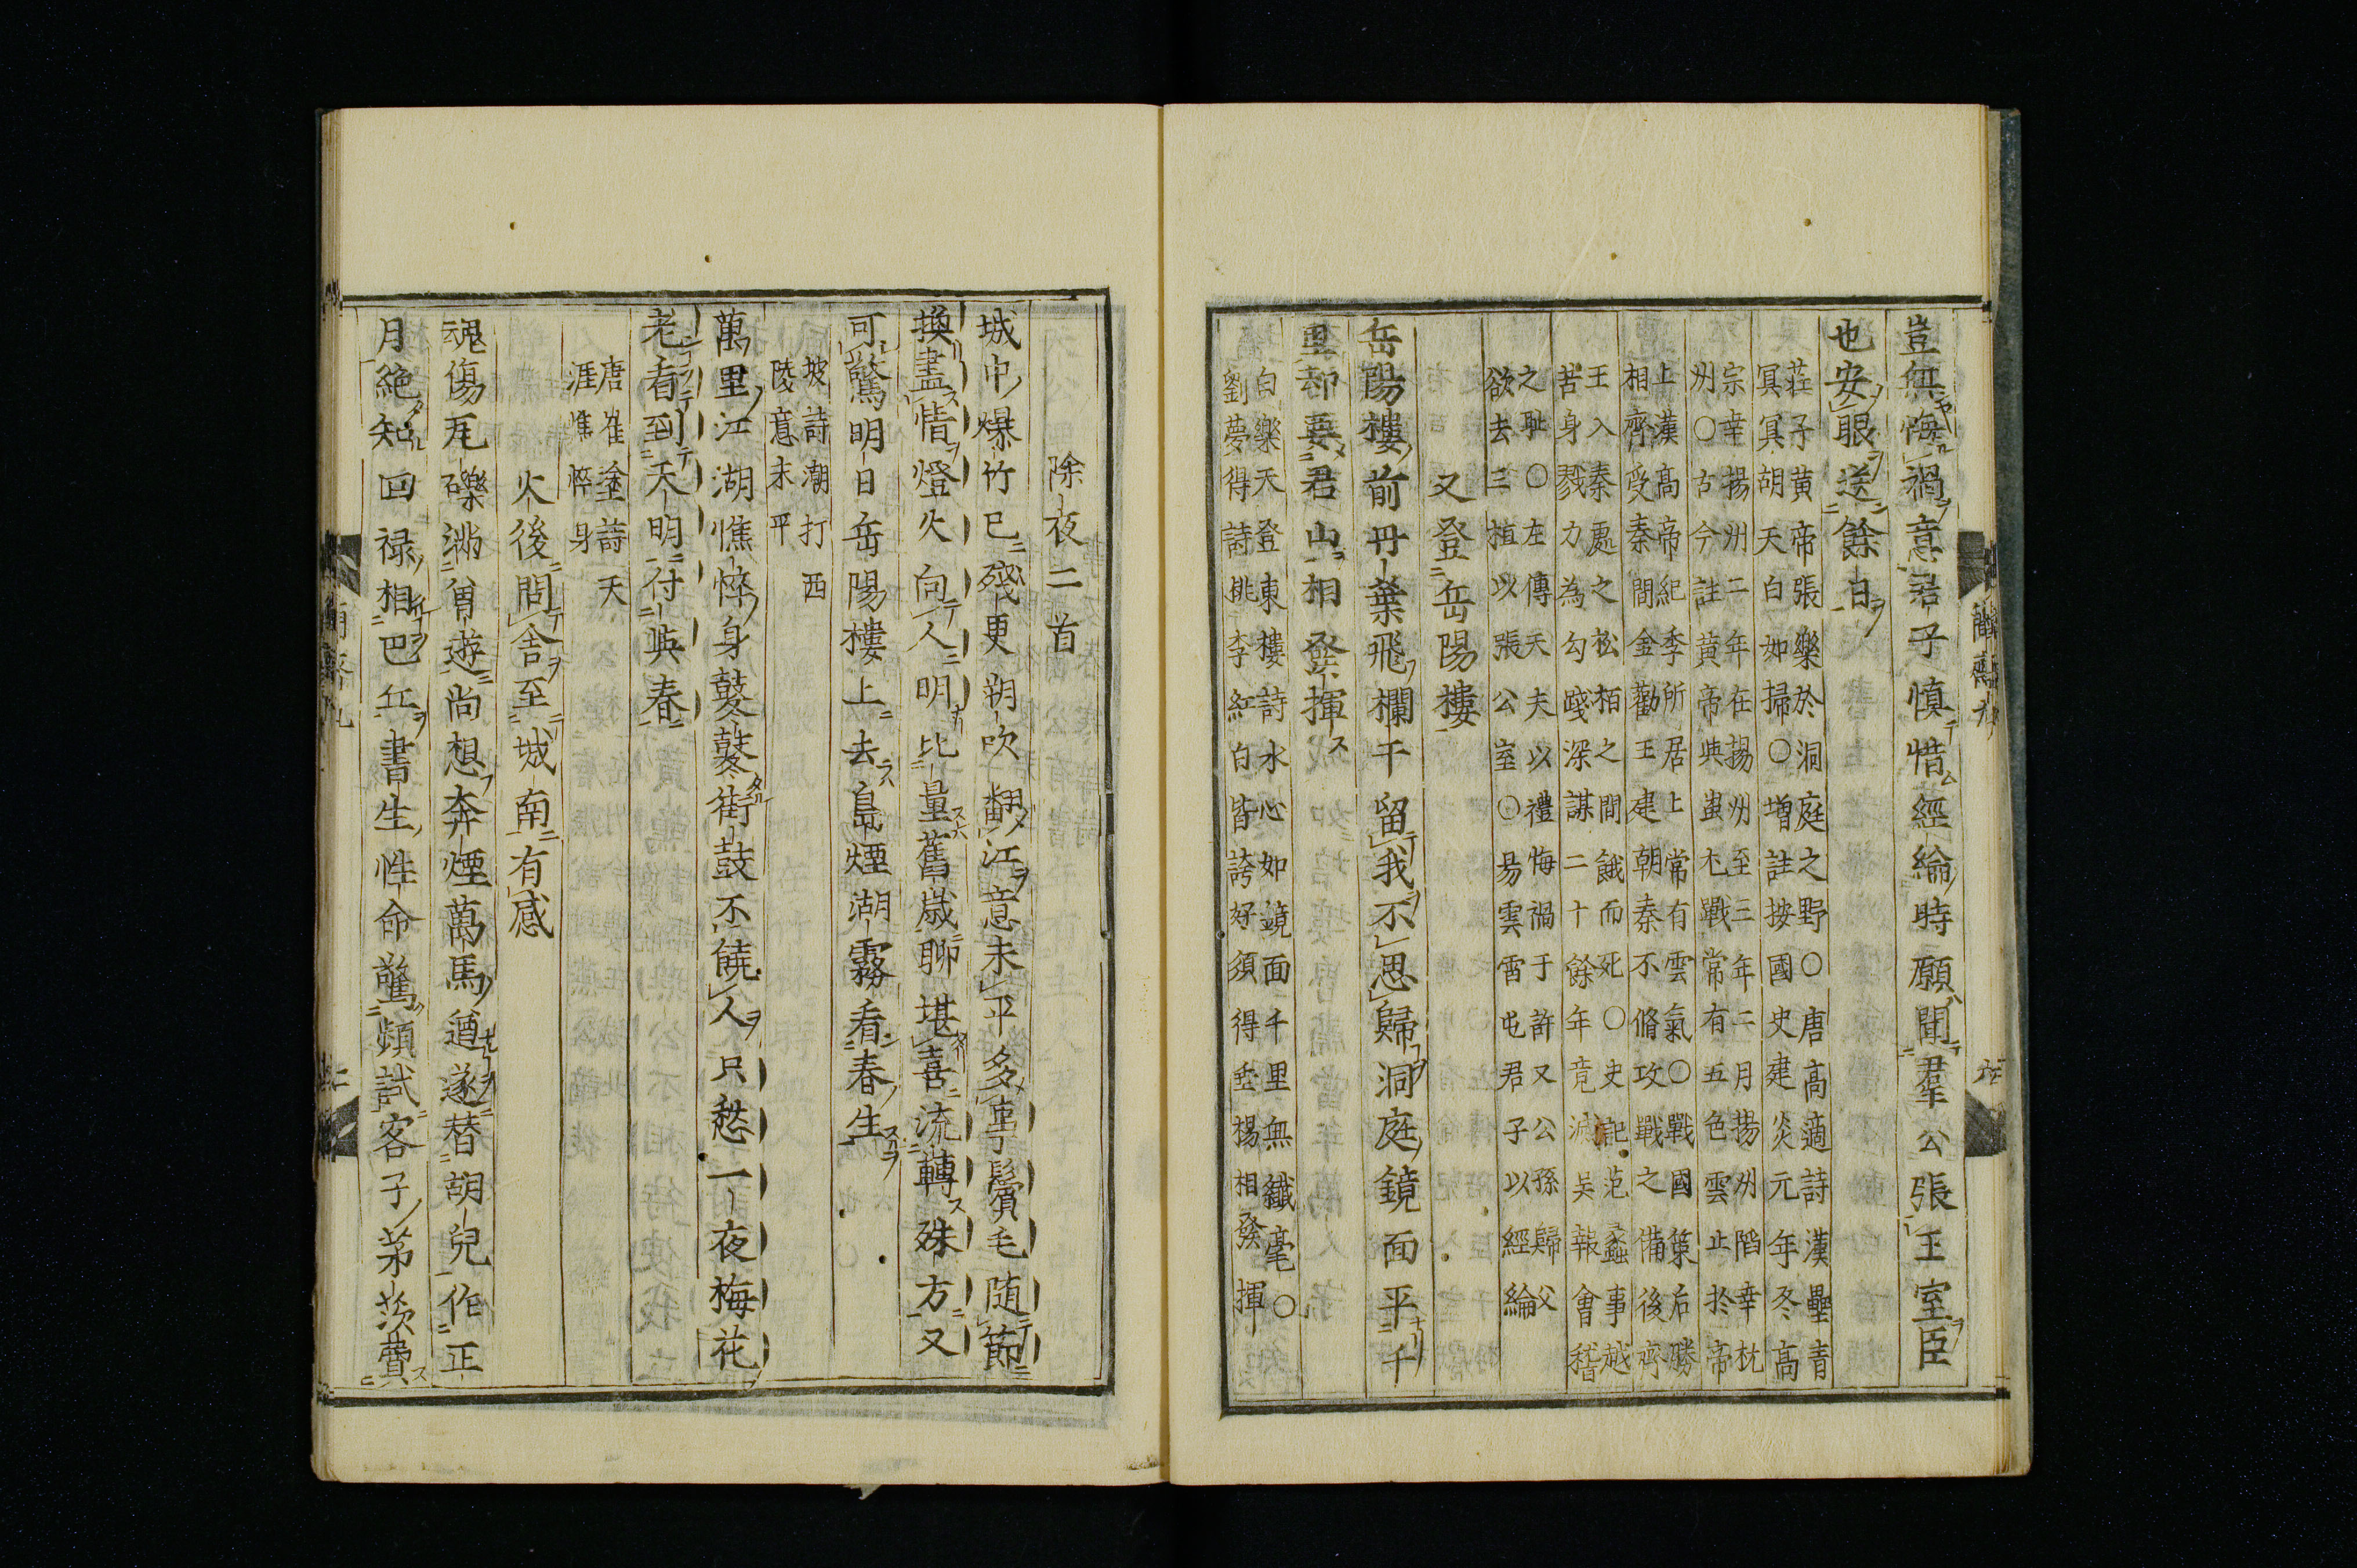 豈無悔禍意君子慎惜經綸時願聞羣公張王室臣
也安眼送餘白
荘子黄帝張樂於洞庭之野○唐高適詩漢壘青
冥冥胡天白如掃○増註按國史建炎元年冬高
宗幸揚州二年在揚州至三年二月揚州陷幸杭
州○古今註黄帝與蚩尤戰常有五色雲止於帝
上漢高帝紀季所居上常有雲氣○戰國策后勝
相齊受秦間金勸王建朝秦不脩攻戰之備後齊
王入秦處之松栢之間餓而死○史記范蠡事越
苦身戮力為勾踐深謀二十餘年竟滅吴報會稽
之耻○左傳天夫以禮悔禍于許又公孫歸父
欲去三桓以張公室○易雲雷屯君子以經綸
又登岳陽樓
岳陽樓前丹葉飛欄干留我不思歸洞庭鏡面平千
里却要君山相發揮
白樂天登東樓詩水心如鏡面千里無纖毫○
劉夢得詩桃李紅白皆誇好須得垂楊相發揮
除夜二首
城中爆竹已殘更朔吹翻江意未平多事鬢毛随節
換盡情燈火向人明比量舊歳聊堪喜流轉殊方又
可驚明日岳陽樓上去島煙湖霧看春生
坡詩潮打西
陵意未平
萬里江湖憔悴身鼕鼕街鼓不饒人只愁一夜梅花
老看到天明付與春
唐崔塗詩天
涯憔悴身
火後問舎至城南有感
魂傷瓦礫浉曽遊尚想奔煙萬馬遒遂替胡兒作正
月絶知回禄相巴丘書生性命驚頻試客子茅茨費